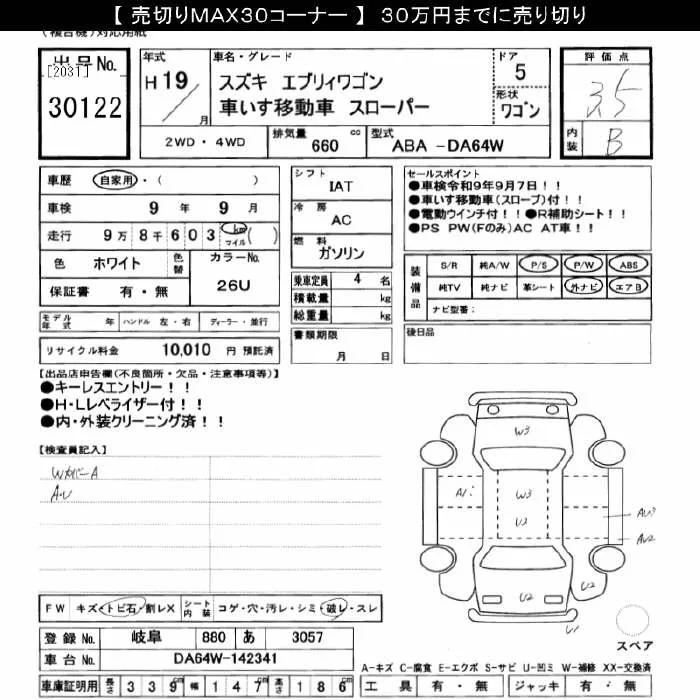 【 売切りMAX30コーナー 】 30万円までに売り切り
(複合機)対応用紙
出品No.
[2031]
30122
年式
H 19/月
車名・グレード
スズキ エブリィワゴン
車いす移動車 スローパー
ドア
5
形状
ワゴン
評価点
3.5
内装
B
2WD・4WD
排気量 660 cc
型式 ABA -DA64W
車歴 自家用・( )
車検 9年 9月
走行 9万8千603 km マイル( )
色 ホワイト 色替
カラーNo. 26U
保証書 有・無
モデル年式 年 ハンドル 左・右 ディーラー・並行
リサイクル料金 10,010 円 預託済
シフト
IAT
冷房
AC
燃料
ガソリン
乗車定員 4 名
積載量 kg
総重量 kg
書類期限
月 日
セールスポイント
●車検令和9年9月7日!!
●車いす移動車(スロープ)付!!
●電動ウインチ付!!●R補助シート!!
●PS PW(Fのみ)AC AT車!!
装備品
S/R 純A/W P/S P/W ABS
純TV 純ナビ 革シート 外ナビ エアB
ナビ型番:
後日品
【出品店申告欄(不良箇所・欠品・注意事項等)】
●キーレスエントリー!!
●H・Lレベライザー付!!
●内・外装クリーニング済!!
【検査員記入】
WカバーA
A・U
W3
A1
W3
U2
AU3
AU2
U2
U2
U1
スペア
FW キズ・トビ石・割レX シート内装 コゲ・穴・汚レ・シミ・破レ・スレ
登録No. 岐阜 880 あ 3057
車台No. DA64W-142341
車庫証明用 長さ 339cm 幅 147cm 高さ 186cm
A-キズ C-腐食 E-エクボ S-サビ U-凹ミ W-補修 XX-交換済
工具 有・無 ジャッキ 有・無